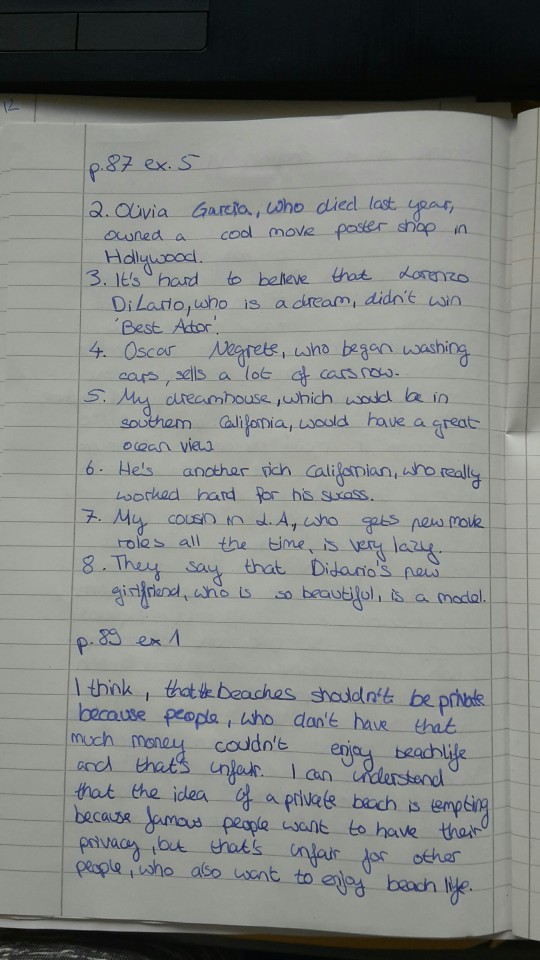 12
p.87 ex. 5
2. Olivia Garcia, who died last year,
owned a cool move poster shop in
Hollywood.
3. It's hard to believe that Lorenzo
DiLario, who is a dream, didn't win
'Best Actor'.
4. Oscar Negrete, who began washing
cars, sells a lot of cars now.
5. My dreamhouse, which would be in
southern California, would have a great
ocean view
6. He's another rich Californian, who really
worked hard for his sucess.
7. My cousin in L.A., who gets new move
roles all the time, is very lazy.
8. They say that Dilario's new
girlfriend, who is so beautiful, is a model.
p.89 ex 1
I think, that the beaches shouldn't be private
because people, who don't have that
much money couldn't enjoy beachlife
and that's unfair. I can understand
that the idea of a private beach is tempting
because famous people want to have their
privacy, but that's unfair for other
people, who also want to enjoy beach life.